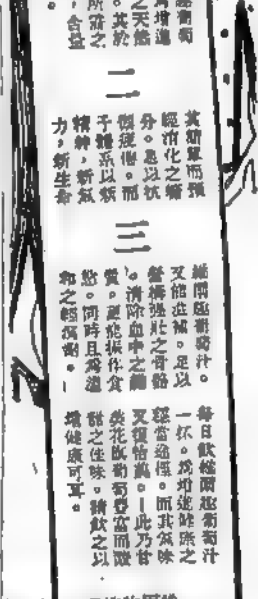 葡萄
為增進
之天然
。其於
所需之
，含益
。
二
其糖單而預
經消化之糖
分。足以抗
禦疲倦。而
予體系以新
精神，新氣
力，新生命
三
維爾趣葡萄汁。
又能滋補。足以
營構强壯之骨骼
。清除血中之雜
質。更能振作食
慾。同時且為溫
和之輕瀉劑。—
每日飲維爾趣葡萄汁
一杯。為增進健康之
途徑。而其氣味
又復怡爽。—此乃甘
美花旗葡萄豐富而
之佳味。請飲之以
增健康可耳。